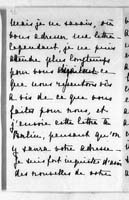 Mais je ne savais, où
vous adresser une lettre
cependant, je ne puis
attendre plus longtemps
pour vous ce
que nous ressentons vis
à vis de ce que vous
faites pour nous, et
j'envoie cette lettre à
pensant qu'on
y saura votre adresse.
Je suis fort inquiète d'avoir
des nouvelles de votre